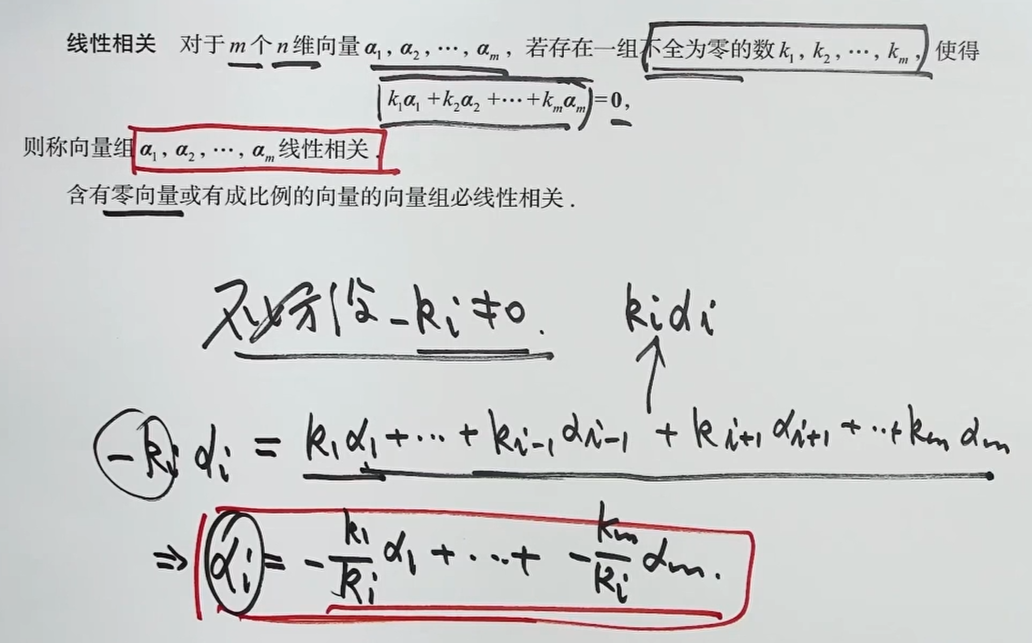 线性相关 对于m个n维向量α₁, α₂, ⋯, αₘ, 若存在一组不全为零的数k₁, k₂, ⋯, kₘ, 使得
k₁α₁+k₂α₂+⋯+kₘαₘ=0,
则称向量组α₁, α₂, ⋯, αₘ线性相关.
含有零向量或有成比例的向量的向量组必线性相关.
不妨设-kᵢ≠0. kᵢαᵢ
-kᵢαᵢ = k₁α₁+⋯+kᵢ₋₁αᵢ₋₁+kᵢ₊₁αᵢ₊₁+⋯+kₘαₘ
⇒ αᵢ = -k₁/kᵢ α₁+⋯+ -kₘ/kᵢ αₘ.